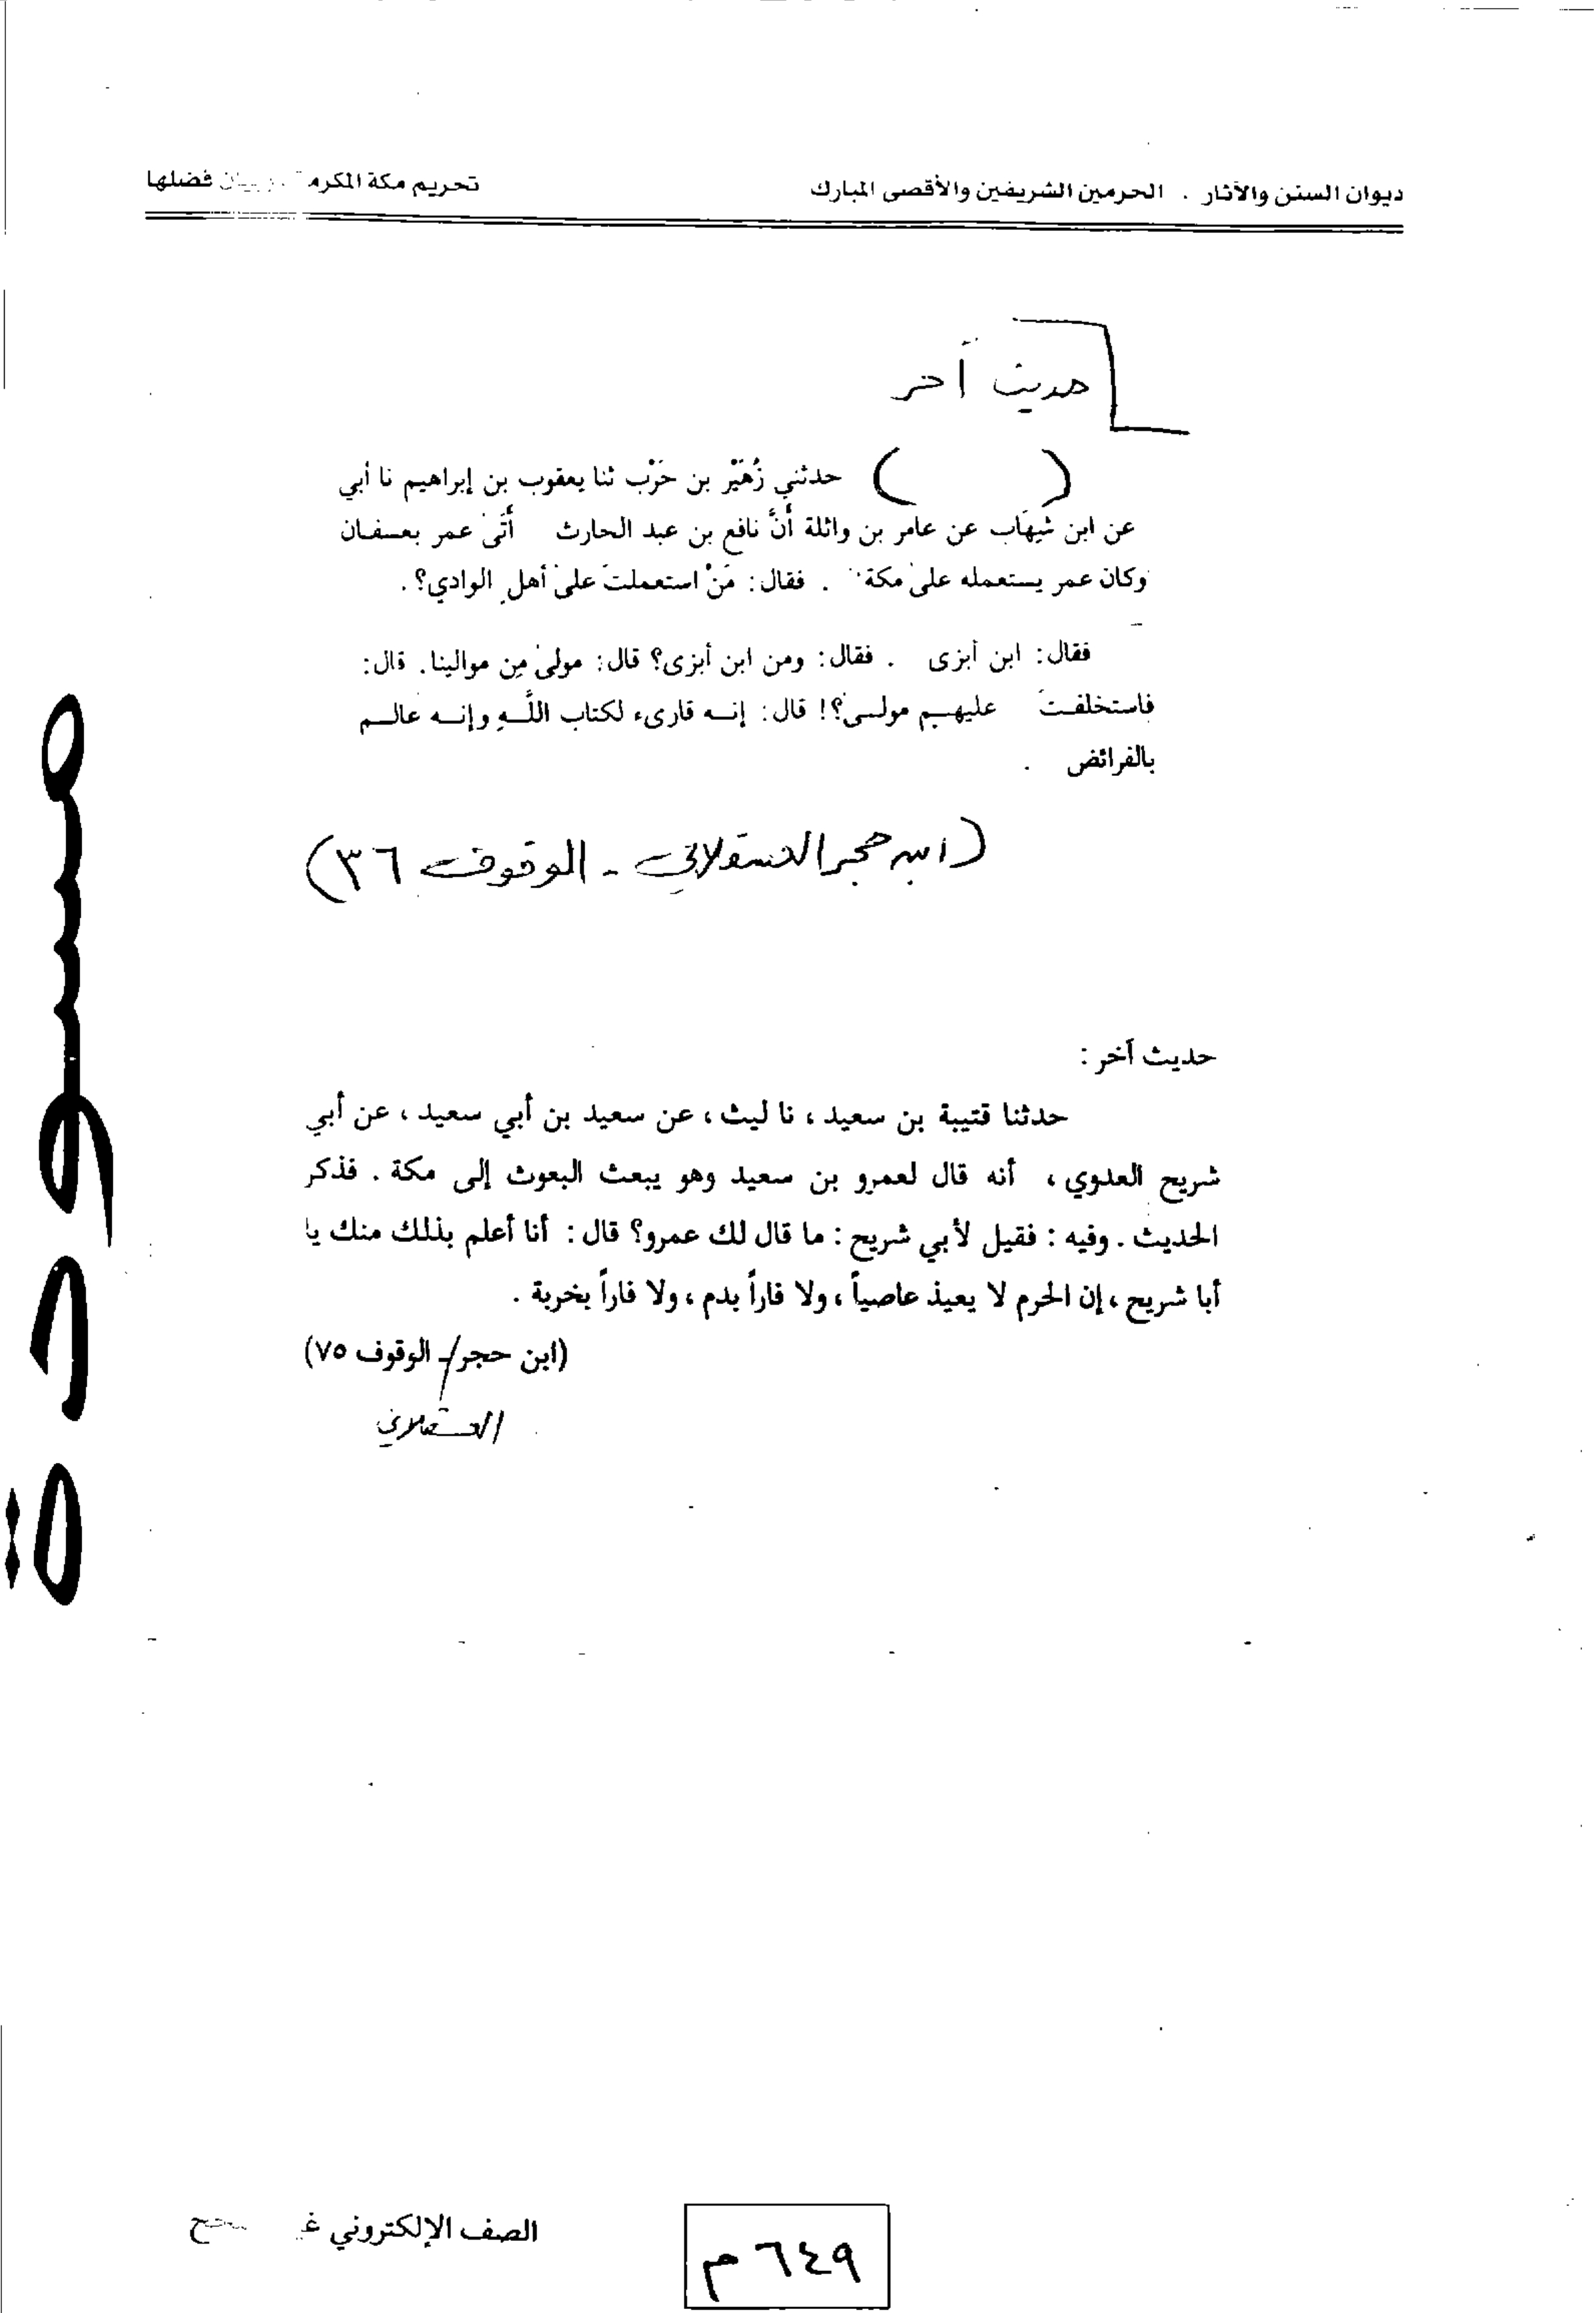 ديوان السنن والآثار . الحرمين الشريفين والأقصى المبارك
تحريم مكة المكرمة وبيان فضلها
حديث آخر
( ) حدثني زُهَيْر بن حَرْب ثنا يعقوب بن إبراهيم نا أبي
عن ابن شِهَاب عن عامر بن واثلة أنَّ نافع بن عبد الحارث أتَى عمر بعسفان
وكان عمر يستعمله على مكة . فقال: مَنْ استعملتَ على أهل الوادي؟ .
فقال: ابن أبزى . فقال: ومن ابن أبزى؟ قال: مولى مِن موالينا. قال:
فاستخلفتَ عليهم مولى؟! قال: إنه قارىء لكتاب اللَّهِ وإنه عالم
بالفرائض .
(ابن حجر العسقلاني - الوقوف ٣٦)
حديث آخر :
حدثنا قتيبة بن سعيد ، نا ليث ، عن سعيد بن أبي سعيد ، عن أبي
شريح العدوي ، أنه قال لعمرو بن سعيد وهو يبعث البعوث إلى مكة . فذكر
الحديث . وفيه : فقيل لأبي شريح : ما قال لك عمرو؟ قال : أنا أعلم بذلك منك يا
أبا شريح ، إن الحرم لا يعيذ عاصياً ، ولا فاراً بدم ، ولا فاراً بخربة .
(ابن حجر/- الوقوف ٧٥)
العسقلاني
مسودة
الصف الإلكتروني
٦٤٩ م